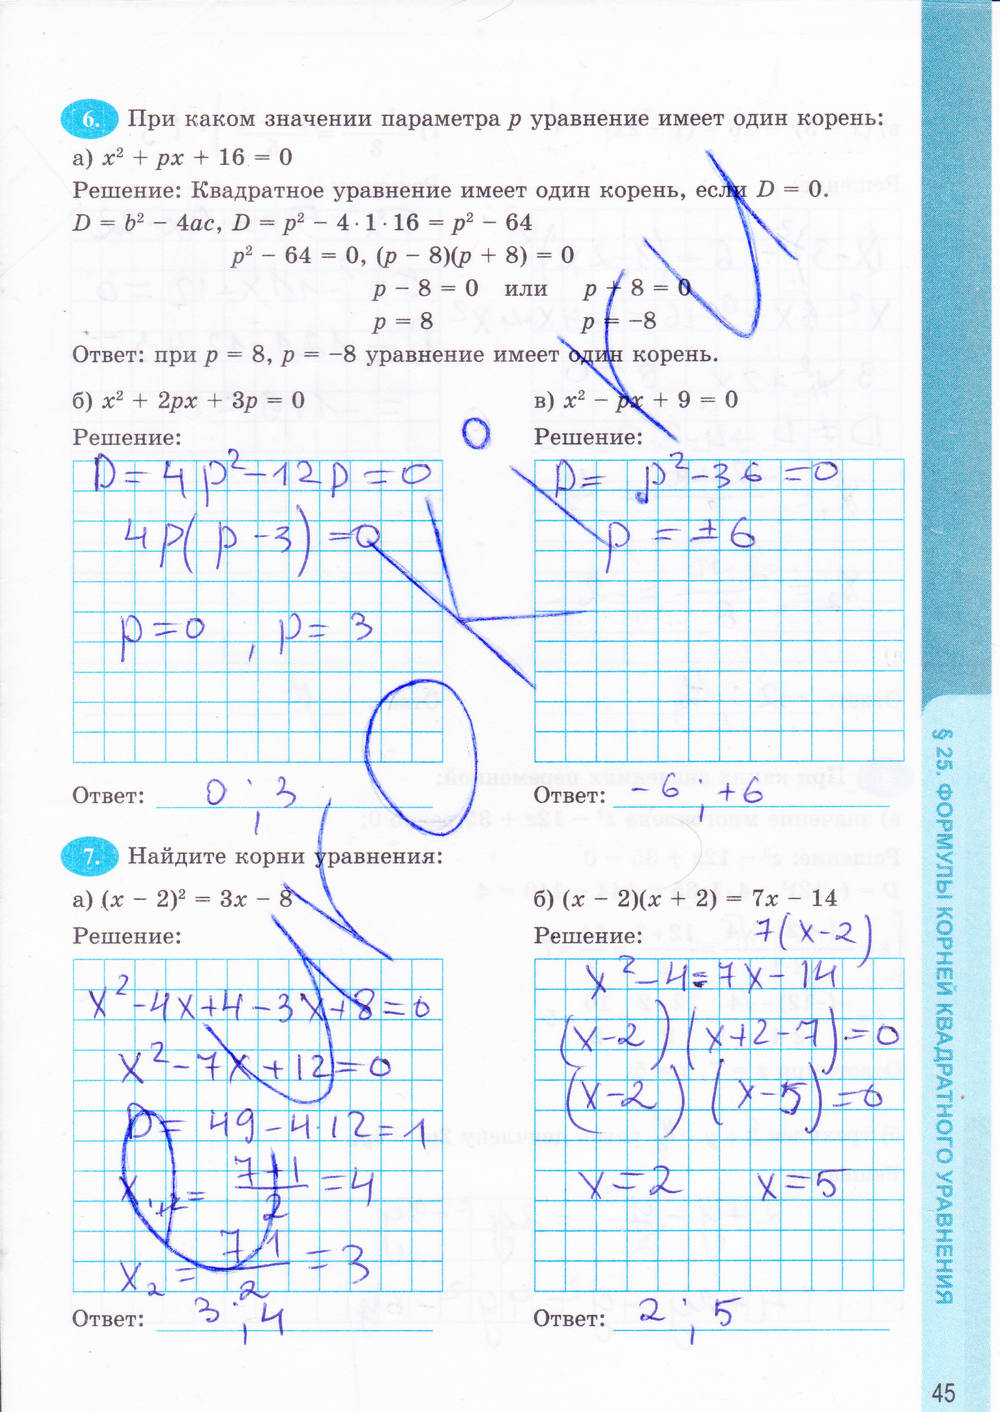 6. При каком значении параметра p уравнение имеет один корень:
а) x² + px + 16 = 0
Решение: Квадратное уравнение имеет один корень, если D = 0.
D = b² − 4ac, D = p² − 4·1·16 = p² − 64
p² − 64 = 0, (p − 8)(p + 8) = 0
p − 8 = 0 или p + 8 = 0
p = 8 p = −8
Ответ: при p = 8, p = −8 уравнение имеет один корень.
б) x² + 2px + 3p = 0
Решение:
D = 4p² − 12p = 0
4p(p − 3) = 0
p = 0, p = 3
Ответ: 0; 3
в) x² − px + 9 = 0
Решение:
D = p² − 36 = 0
p = ± 6
Ответ: −6; +6
7. Найдите корни уравнения:
а) (x − 2)² = 3x − 8
Решение:
x² − 4x + 4 − 3x + 8 = 0
x² − 7x + 12 = 0
D = 49 − 4·12 = 1
= (7+1)/2 = 4
x₂ = (7−1)/2 = 3
Ответ: 3; 4
б) (x − 2)(x + 2) = 7x − 14
Решение: 7(x − 2)
x² − 4 = 7x − 14
(x − 2)(x + 2 − 7) = 0
(x − 2)(x − 5) = 0
x = 2 x = 5
Ответ: 2; 5
§ 25. ФОРМУЛЫ КОРНЕЙ КВАДРАТНОГО УРАВНЕНИЯ
45